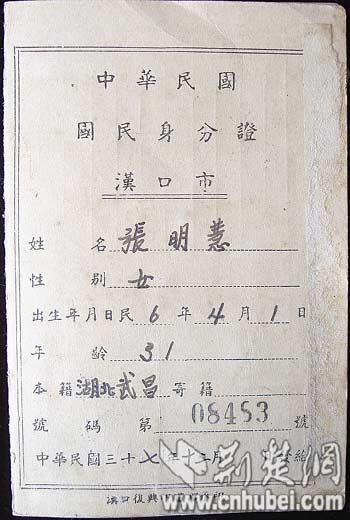 中華民國
國民身分證
漢口市
姓名 張明慧
性別 女
出生年月日民 6 年 4 月 1 日
年齡 31
本籍 湖北武昌 寄籍
號碼 第 08453 號
中華民國三十七年十二月
荆楚網
www.cnhubei.com
漢口復興